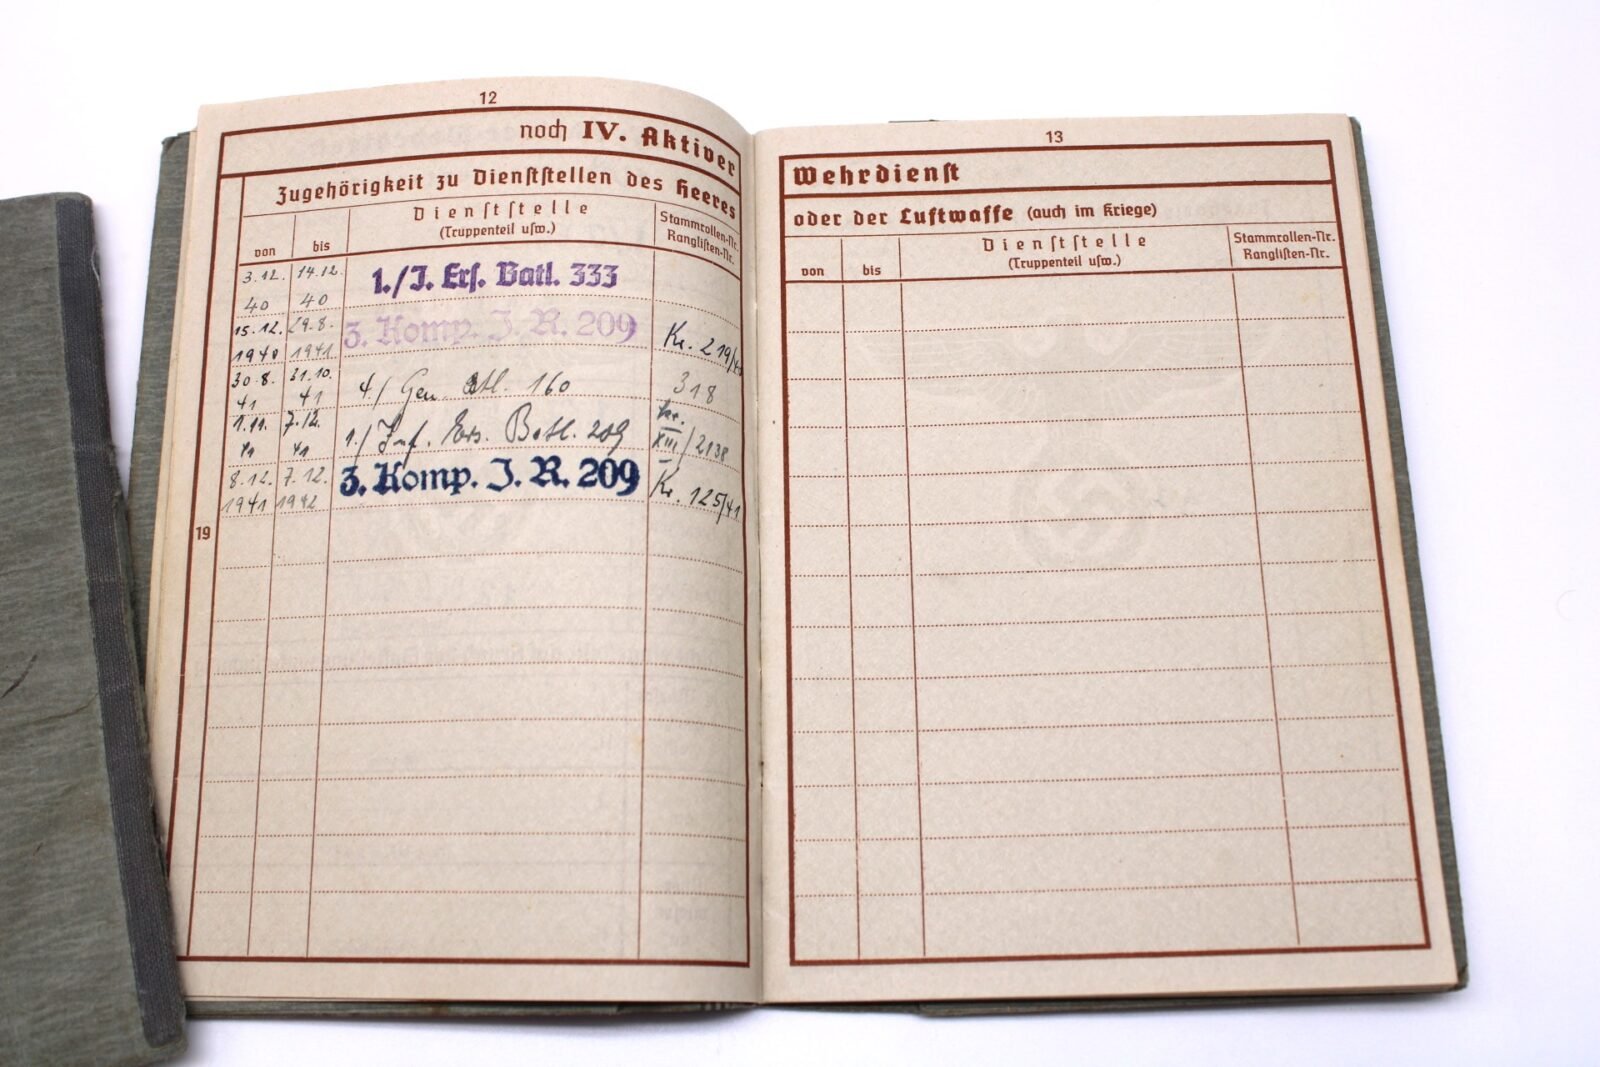 12
noch IV. Aktiver
Zugehörigkeit zu Dienststellen des Heeres
von
bis
Dienststelle
(Truppenteil usw.)
Stammrollen-Nr.
Ranglisten-Nr.
3.12. 14.12. 1./J. Ers. Batl. 333
40 40
15.12. 29.8. 3. Komp. J. R. 209 Kr. 219/40
1940 1941
30.8. 31.10. 4./ Gen. 160 318
41 41
1.11. 7.12. 1./ Inf. Ers. Batl. 209 kr. XIII/2138
41 41
8.12. 7.12. 3. Komp. J. R. 209 Kr. 125/41
1941 1942
19
13
Wehrdienst
oder der Luftwaffe (auch im Kriege)
von
bis
Dienststelle
(Truppenteil usw.)
Stammrollen-Nr.
Ranglisten-Nr.